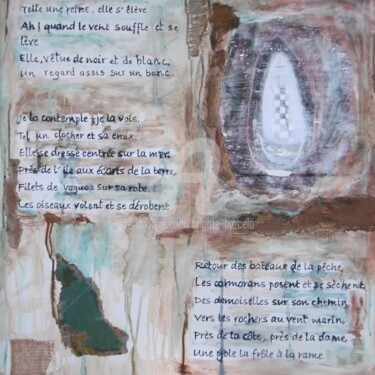 Telle une reine, elle s'élève
Ah ! quand le vent souffle et se
lève
Elle, vêtue de noir et de blanc,
un regard assis sur un banc.
Je la contemple, je la vois,
Tel un clocher et sa croix.
Elle se dresse centrée sur la mer,
Près de l'île aux écarts de la terre,
Filets de vagues sur sa robe
Les oiseaux volent et se dérobent
Retour des bateaux de la pêche,
Les cormorans posent et se sèchent,
Des demoiselles sur son chemin
Vers les rochers au vent marin,
Près de la côte, près de la dame,
Une pôle la frôle à la rame